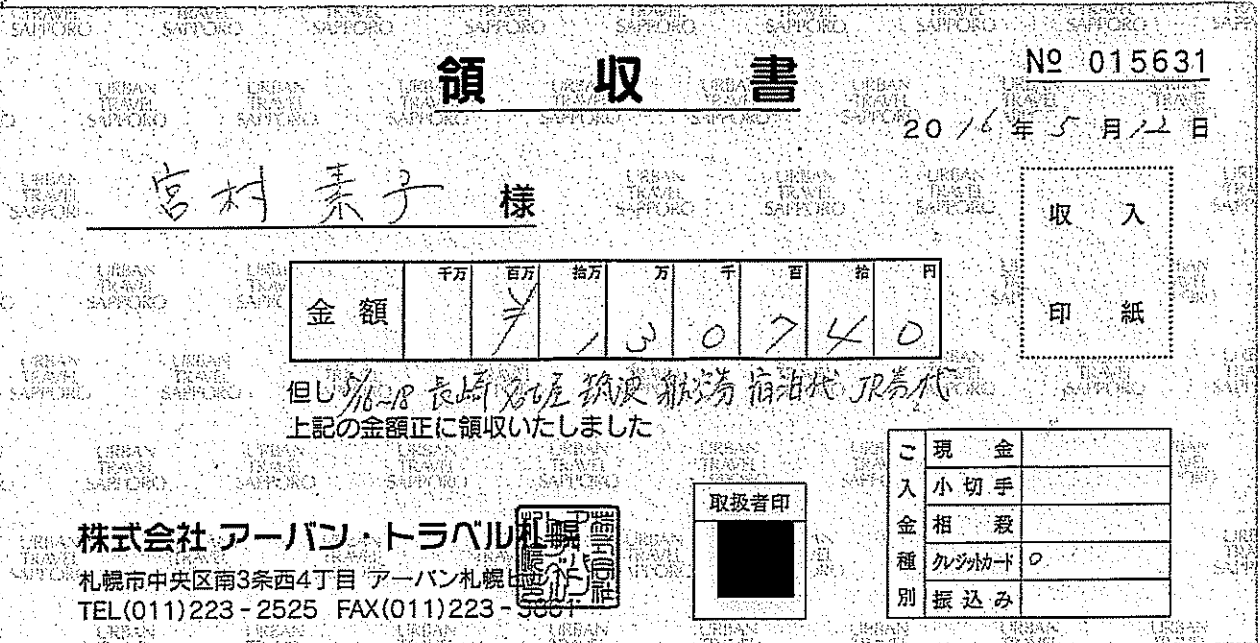 領 収 書
№ 015631
2016年5月12日
宮村 素子 様
収 入
印 紙
金 額 千万 百万 拾万 万 千 百 拾 円
¥ 1 3 0 7 4 0
但し 5/16~18 長崎 名古屋 筑波 航空券 宿泊代 JR券代
上記の金額正に領収いたしました
ご入金種別
現 金
小 切 手
相 殺
クレジットカード ○
振 込 み
取扱者印
株式会社 アーバン・トラベル札幌
札幌市中央区南3条西4丁目 アーバン札幌ビ
TEL(011)223-2525 FAX(011)223-
URBAN TRAVEL SAPPORO